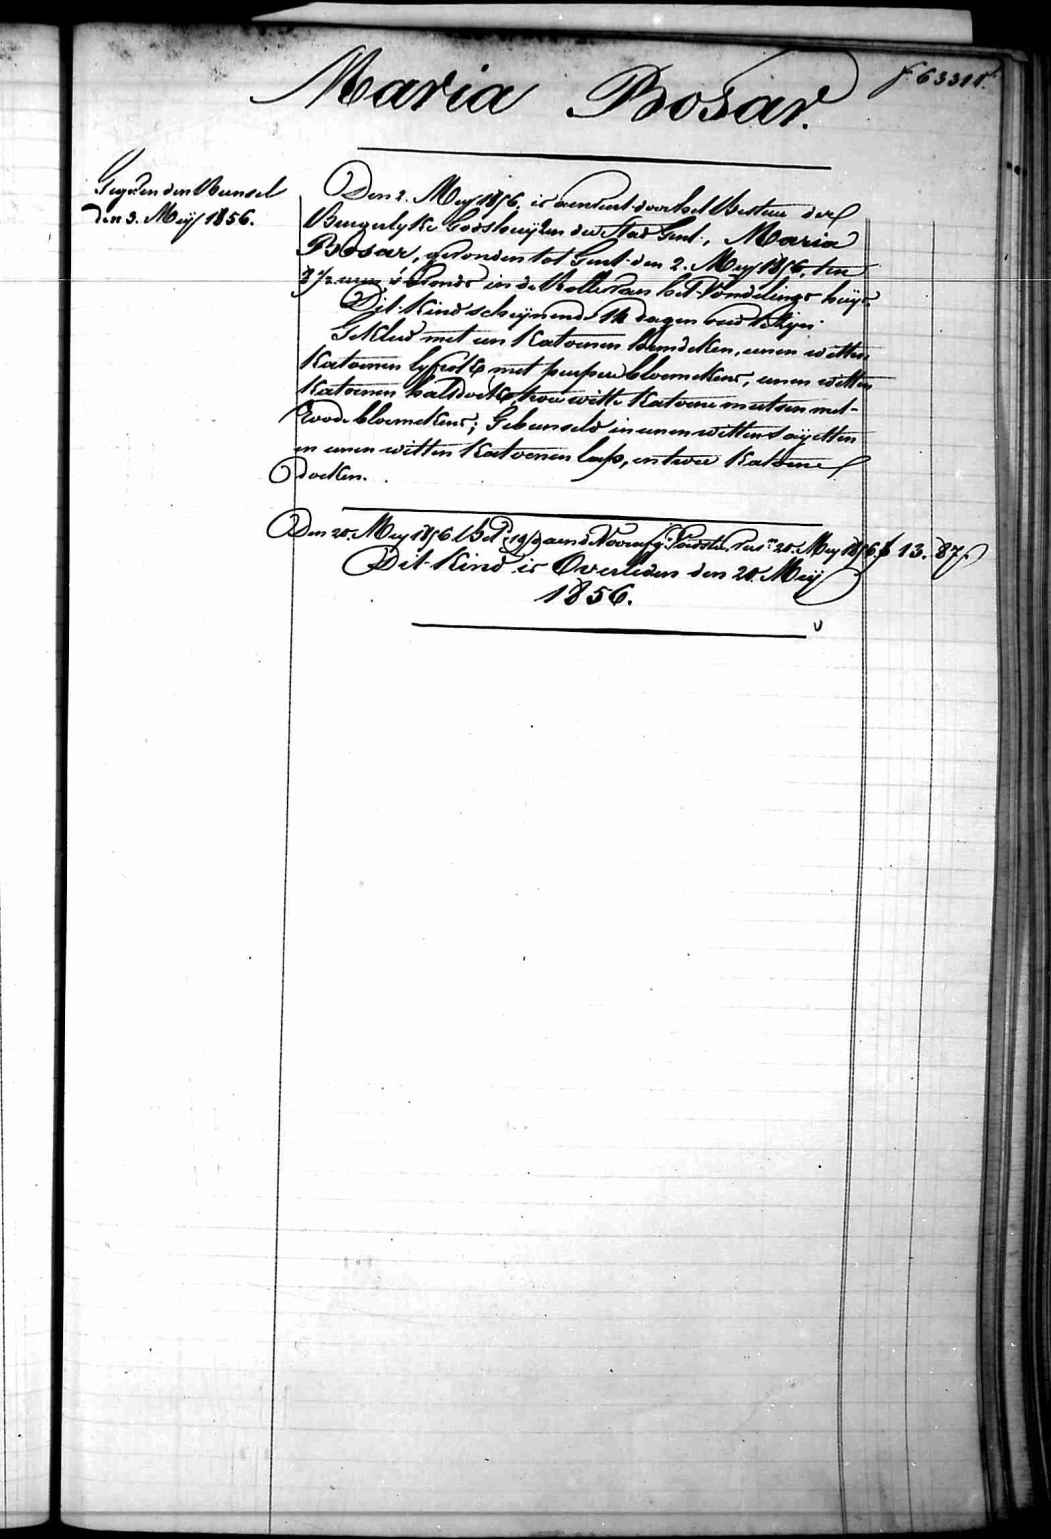 f. 6331
Maria Bosar.
Gegeven den Bunsel
den 3. Meij 1856.
Den 2. Mey 1856, is aenveird door het Bestuur der
Burgerlyke Godshuyzen der Stad Gent, Maria
Bosar, gevonden tot Gent den 2. Mey 1856, ten
9 1/2 uren 's avonds in de Rolle van het Vondelings huys
Dit Kind scheijnende 14 dagen oud te zyn
Gekleed met een Katoenen hemdeken, eenen witten
Katoenen lyfrok met purpere bloemekens, eenen witten
Katoenen halsdoek, twee witte Katoene mutsen met
Roode bloemekens; Gebunseld in eenen witten sayetten
en eenen witten Katoenen lap, en twee Katoene
doeken.
Den 20. Mey 1856 Bet. aen de 20. Mey 1856. f 13. 87.
Dit Kind is Overleden den 20. Meij
1856.